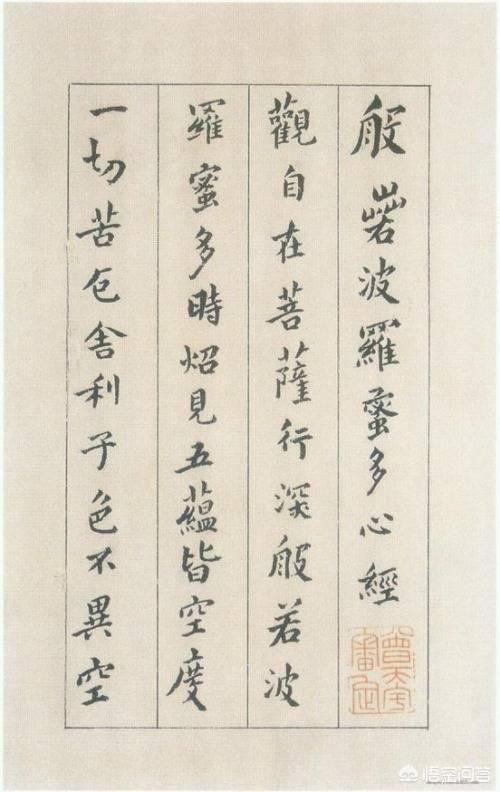 般若波羅蜜多心經
觀自在菩薩行深般若波
羅蜜多時炤見五蘊皆空度
一切苦厄舍利子色不異空
悟空问答